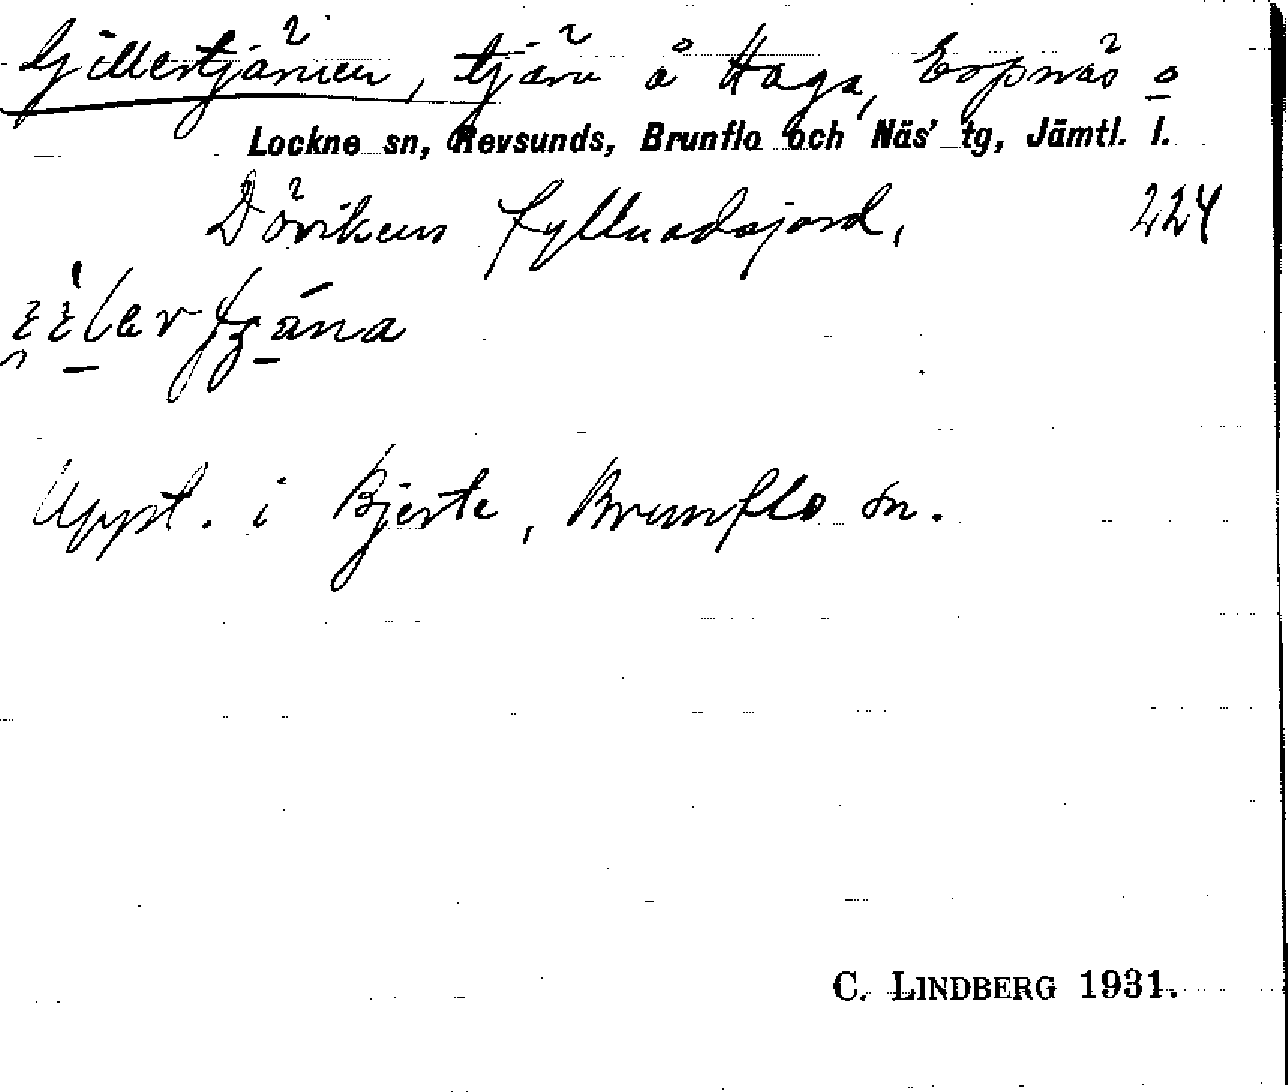 Gillertjärnen, tjärn å Haga, Espnäs o
Lockne sn, Revsunds, Brunflo och Näs' tg, Jämtl. l.
Dövikens fyllnadsjord, 224
Uppt. i Bjerte, Brunflo sn.
C. LINDBERG 1931.